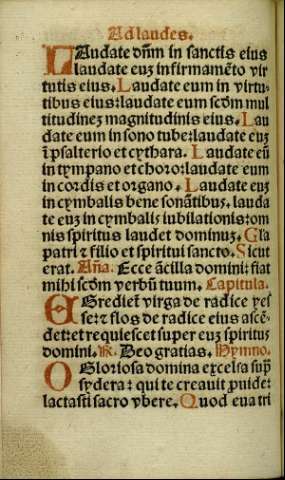 Ad laudes.
LAudate dñm in sanctis eius
laudate euꝫ in firmamẽto vir
tutis eius. Laudate eum in virtu-
tibus eius: laudate eum scďm mul
titudineꝫ magnitudinis eius. Lau
date eum in sono tube: laudate euꝫ
ĩ psalterio et cythara. Laudate eũ
in tympano et choro: laudate eum
in cordis et organo. Laudate euꝫ
in cymbalis bene sonãtibus. lauda
te euꝫ in cymbalis iubilationis: om
nis spiritus laudet dominuꝫ. Gła
patri ⁊ filio et spiritui sancto. Sicut
erat. Aña. Ecce ãcilla domini: fiat
mihi scďm verbũ tuum. Capitula.
EGrediet᷑ virga de radice yes
se: ⁊ flos de radice eius ascẽ-
det: et requiescet super euꝫ spirituꝫ
domini. ℟. Deo gratias. Hymno.
O Gloriosa domina excelsa sup̃
sydera: qui te creauit ꝓuide:
lactasti sacro vbere. Quod eua tri